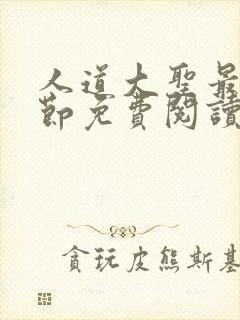 人道大聖最
節免費閱讀
貪玩皮熊斯基